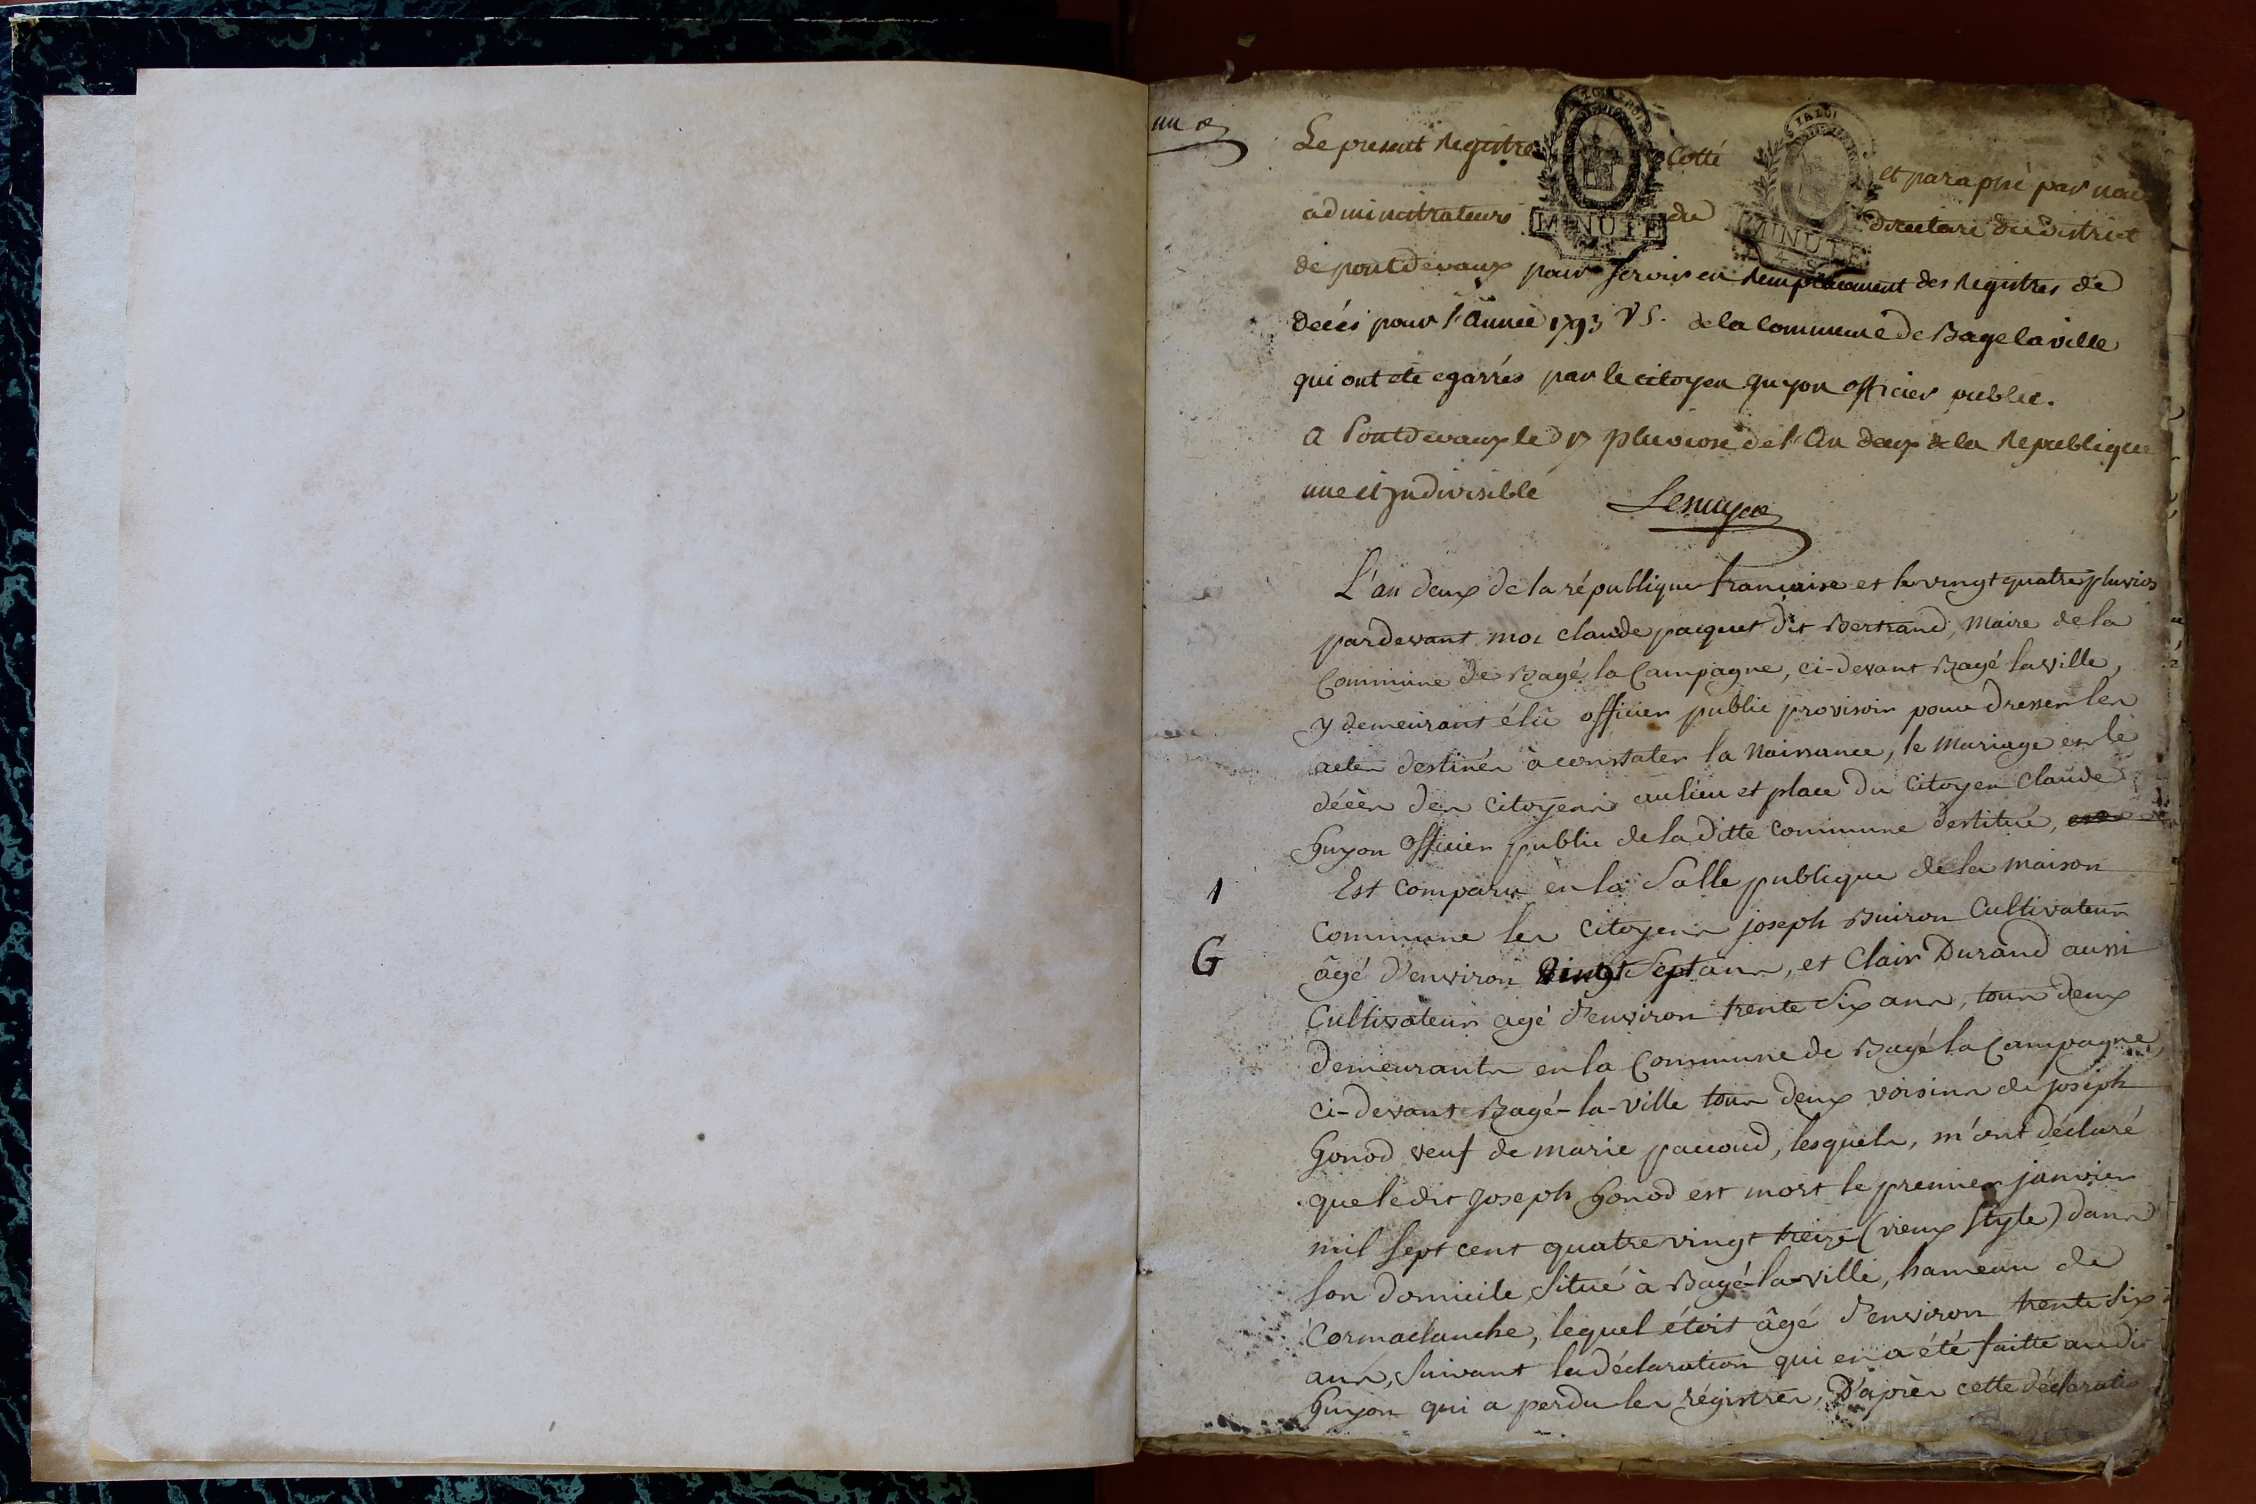 un
Le present Registre Cotté et paraphé par nous
administrateurs du directoire du District
de pontdevaux pour servir en Remplacement des Registres de
decés pour l'année 1793 VS. de la commune de Bage la ville
qui ont eté egarrés par le citoyen guyon officier public.
a Pontdevaux le 17 pluviose de l'an deux de la Republique
une et Indivisible
LA LOI
MINUTE
4 S
LA LOI
MINUTE
4 S
L'an deux de la république francaise et le vingt quatre pluvios
pardevant moi claude paquet dit Bertrand, Maire de la
Commune de Bagé la Campagne, ci-devant Bagé laville,
y demeurant élu officier public provisoir pour dresser les
actes destinés à constater la Naissance, le Mariage et le
décès des citoyens au lieu et place du citoyen claude
Guyon officier public de la ditte commune destitué,
1
Est comparu en la Salle publique de la maison
Commune les citoyens joseph Buiron Cultivateur
G
âgé d'environ vingt Sept ans, et Clair Durand aussi
Cultivateur agé d'environ trente Six ans, tous deux
demeurants en la Commune de Bagé la Campagne,
ci-devant Bagé-la-ville tous deux voisins de joseph
Gonod veuf de marie pauoud, lesquels, m'ont déclaré
que ledit Joseph Gonod est mort le premier janvier
mil Sept cent quatre vingt treize (vieux Style) dans
Son domicile Situé à Bagé-la-ville, hameau de
Cormaclanche, lequel étoit âgé d'environ trente Six
ans, Suivant la déclaration qui en a été faitte audit
Guyon qui a perdu les régistres, D'après cette déclaratio